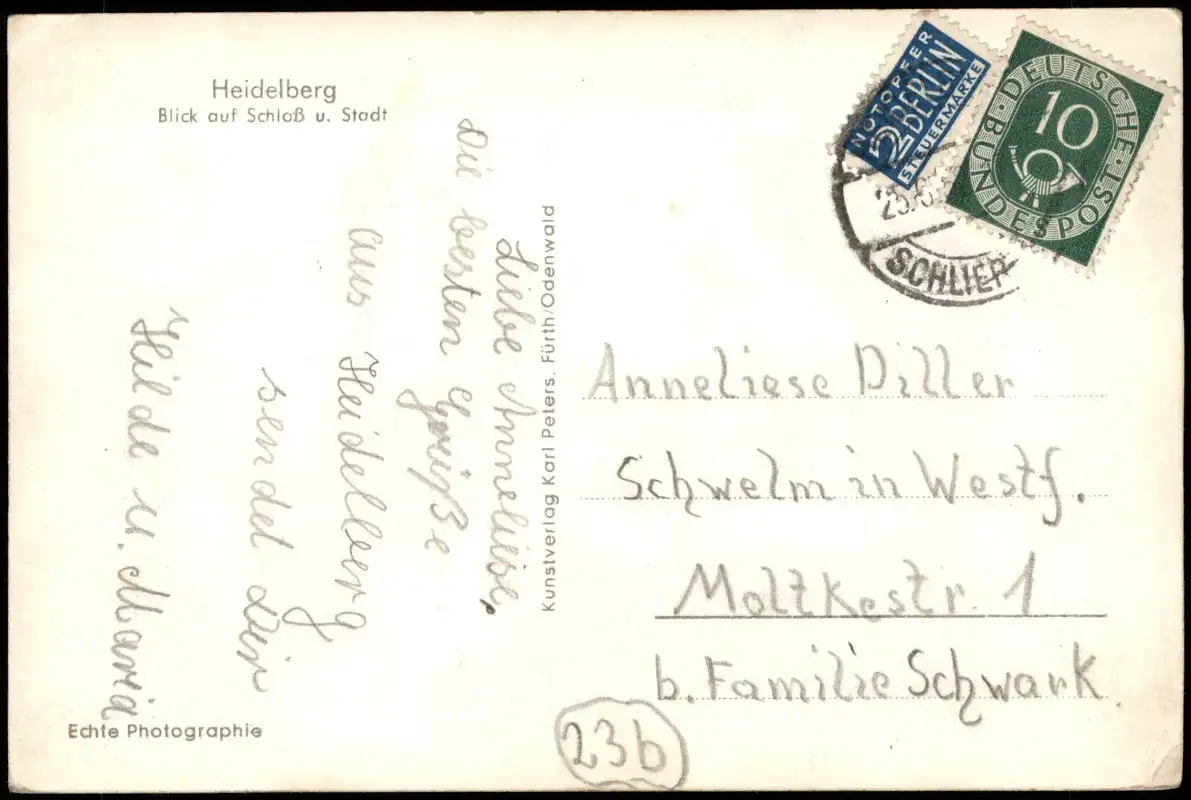 Heidelberg
Blick auf Schloß u. Stadt
NOTOPFER
2 BERLIN
STEUERMARKE
DEUTSCHE
BUNDESPOST
10
SCHLIER
Liebe Anneliese,
Die besten
Grüße
aus Heidelberg
sendet Dir
Hilde u. Maria
Kunstverlag Karl Peters, Fürth/Odenwald
Anneliese Diller
Schwelm in Westf.
Moltkestr. 1
b. Familie Schwark
23b
Echte Photographie